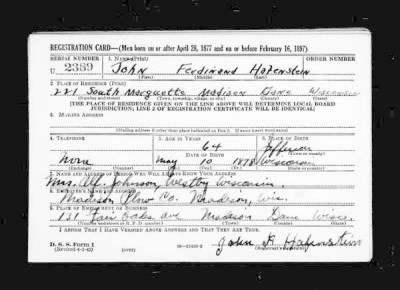 REGISTRATION CARD—(Men born on or after April 28, 1877 and on or before February 16, 1897)
SERIAL NUMBER 1. NAME (Print) ORDER NUMBER
U 2389 JOHN FERDINAND HAFENSTEIN
(First) (Middle) (Last)
2. PLACE OF RESIDENCE (Print)
221 South Marquette Madison Dane Wisconsin
(Number and street) (Town, township, village, or city) (County) (State)
[THE PLACE OF RESIDENCE GIVEN ON THE LINE ABOVE WILL DETERMINE LOCAL BOARD
JURISDICTION; LINE 2 OF REGISTRATION CERTIFICATE WILL BE IDENTICAL]
3. MAILING ADDRESS
[Mailing address if other than place indicated on line 2. If same insert word same]
4. TELEPHONE 5. AGE IN YEARS 6. PLACE OF BIRTH
64 Jefferson
DATE OF BIRTH (Town or county)
None May 10 1878 Wisconsin
(Exchange) (Number) (Mo.) (Day) (Yr.) (State or country)
7. NAME AND ADDRESS OF PERSON WHO WILL ALWAYS KNOW YOUR ADDRESS
Mrs. Johnson, Westby Wisconsin,
8. EMPLOYER'S NAME AND ADDRESS
Madison Plow Co. Madison, Wis.
9. PLACE OF EMPLOYMENT OR BUSINESS
131 Fair Oaks ave Madison Dane Wisc.
(Number and street or R. F. D. number) (Town) (County) (State)
I AFFIRM THAT I HAVE VERIFIED ABOVE ANSWERS AND THAT THEY ARE TRUE.
D. S. S. Form 1
(Revised 4-1-42) (over) John F. Hafenstein